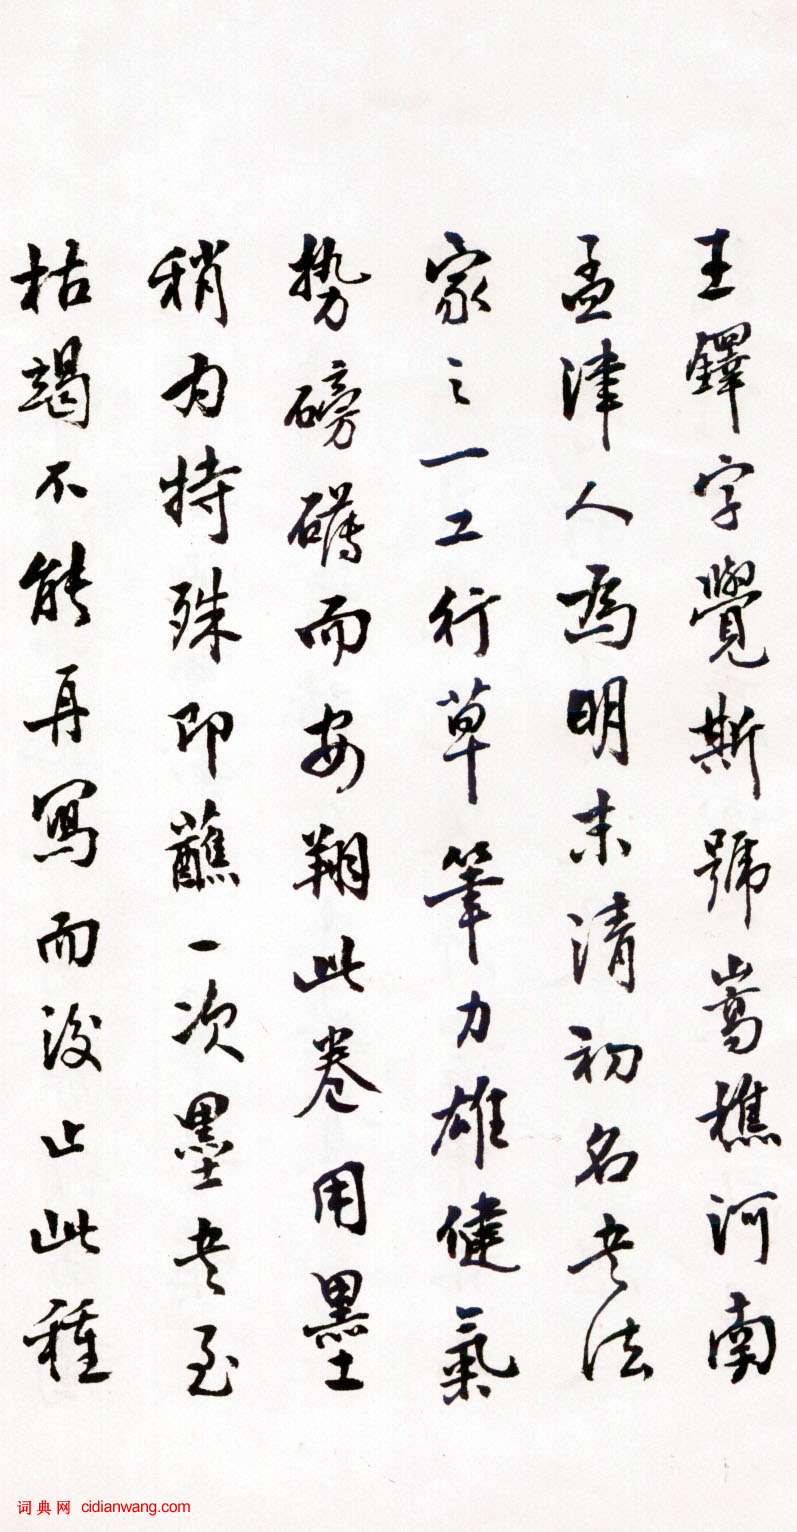 王鐸字覺斯號嵩樵河南
孟津人為明末清初名書法
家之一工行草筆力雄健氣
勢磅礴而安翔此卷用墨
稍为特殊即蘸一次墨书至
枯竭不能再寫而後止此種
词典网 cidianwang.com